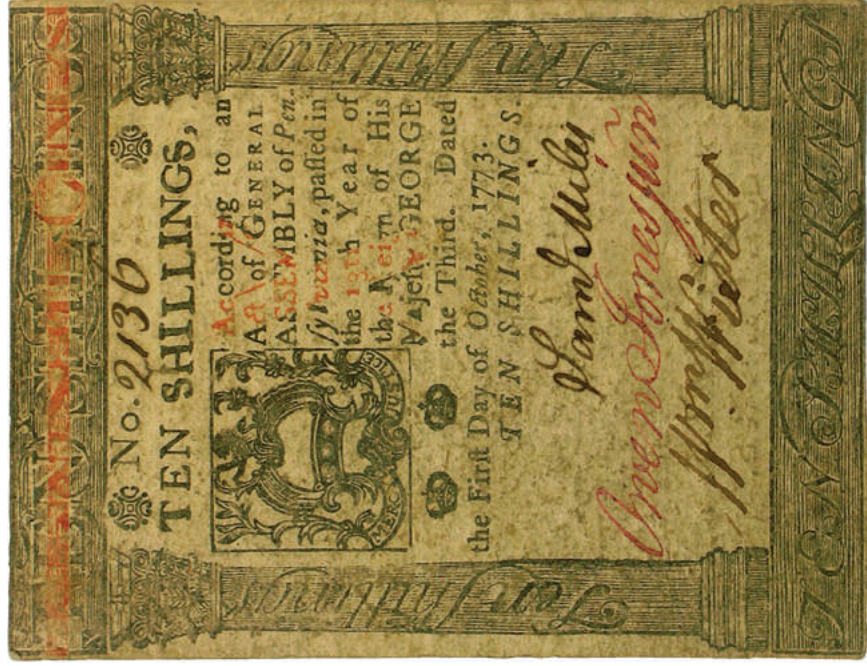 No. 2136
TEN SHILLINGS,
According to an
Act of GENERAL
ASSEMBLY of Pen-
sylvania, passed in
the 13th Year of
the Reign of His
Majesty GEORGE
the Third. Dated
the First Day of October, 1773.
TEN SHILLINGS.
MERCY JUSTICE
Ten Shillings
Ten Shillings
Sam Miles
Owen Jones jun
Wm Wister
TEN SHILLINGS